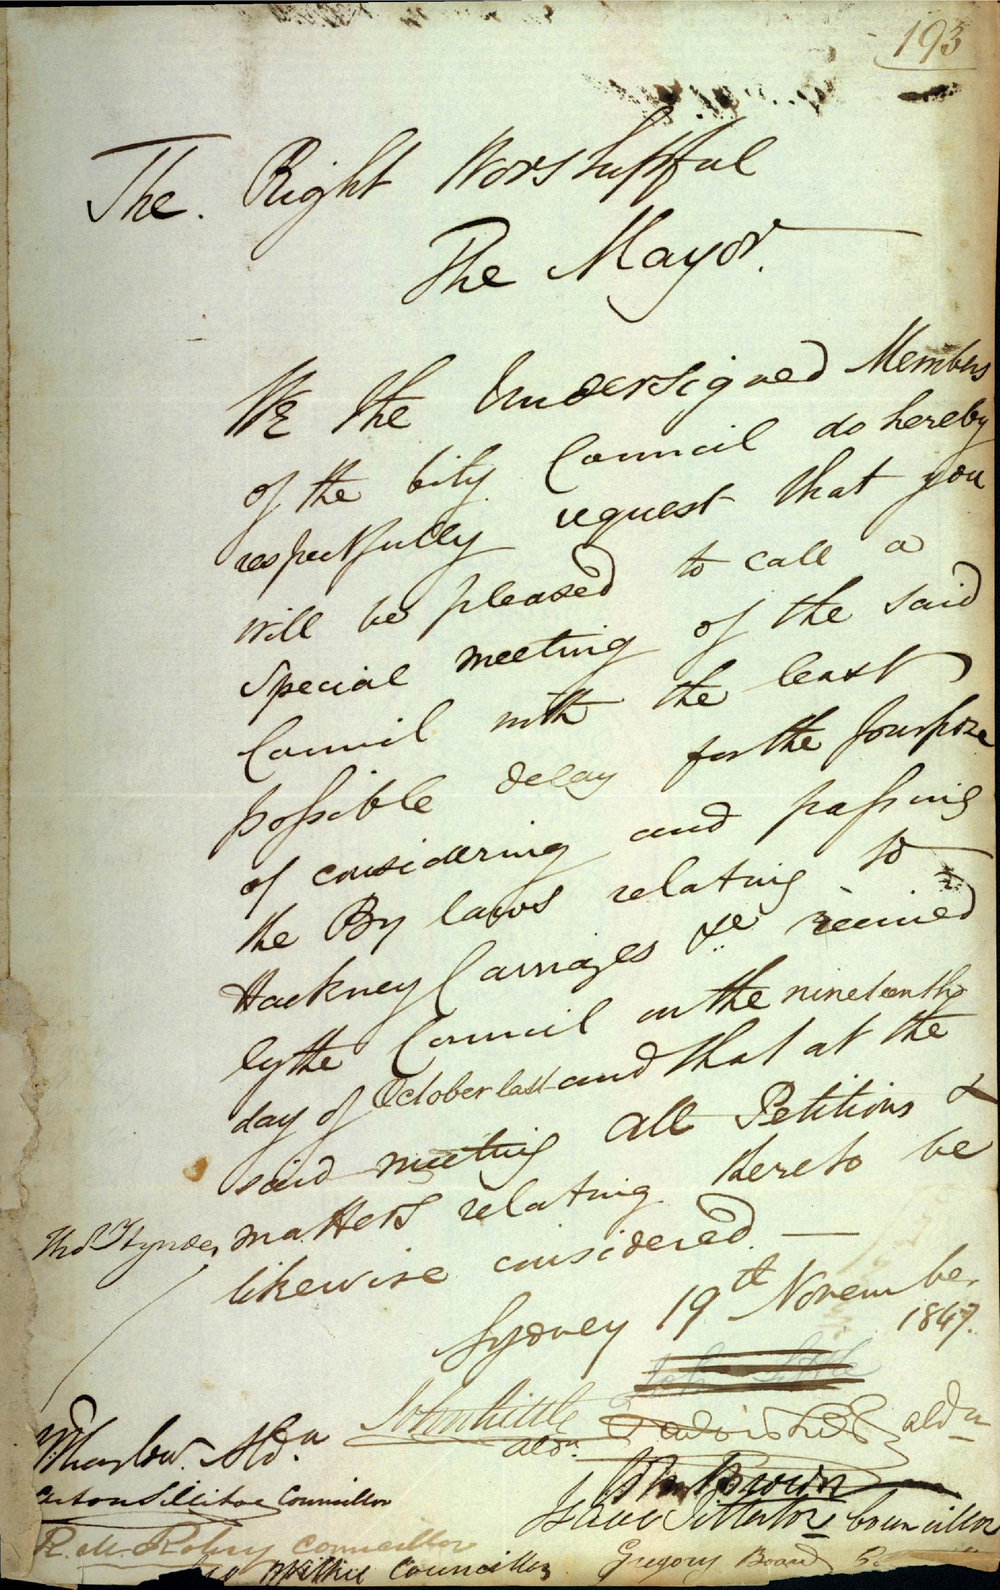 193
The Right Worshipful
The Mayor.
We the Undersigned Members
of the City Council do hereby
respectfully request that you
will be pleased to call a
Special meeting of the said
Council with the least
possible delay for the purpose
of considering and passing
the By laws relating to
Hackney Carriages &c received
by the Council on the nineteenth
day of October last and that at the
said meeting all Petitions &
matters relating thereto be
likewise considered. —
Sydney 19th November
1847.
John Little
aldn
aldn
Ald.n
John Brown
Councillor
Councillor
Councillor
Councillor
Gregory Board